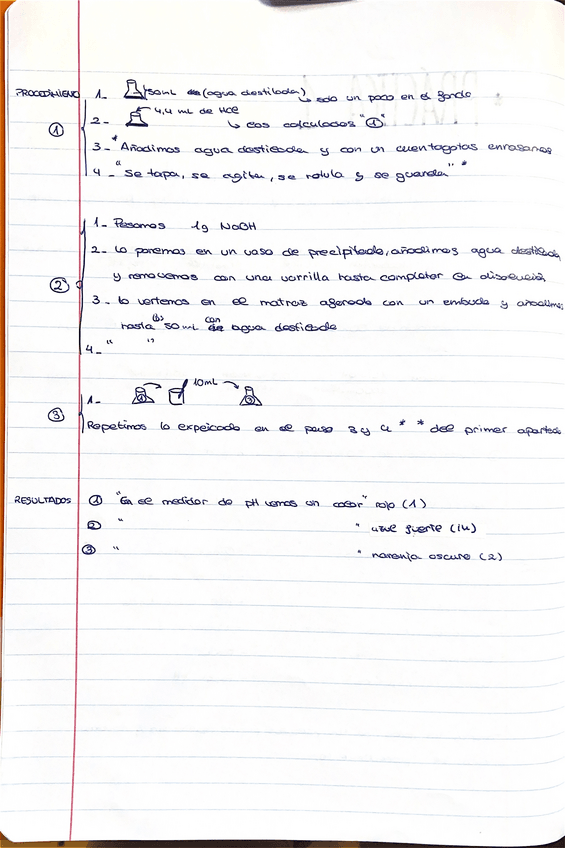 PROCEDIMIENTO 1- 50mL (agua destilada) ↳ solo un poco en el fondo
① 2- 4,4 mL de HCl
↳ los calculados "①".
3- * Añadimos agua destilada y con un cuentagotas enrasamos
4- "Se tapa, se agita, se rotula y se guarda" *
1- Pesamos 1g NaOH
2- Lo ponemos en un vaso de precipitado, añadimos agua destilada
② y removemos con una varilla hasta completar la disolución
3- lo vertemos en el matraz aforado con un embudo y añadimos
hasta (los) 50 mL con agua destilada
4- " "
1- ① 10mL ③
③ Repetimos lo explicado en el paso 3 y 4 * * del primer apartado
RESULTADOS ① "En el medidor de pH vemos un color" rojo (1)
② " " azul fuerte (14)
③ " " naranja oscuro (2)